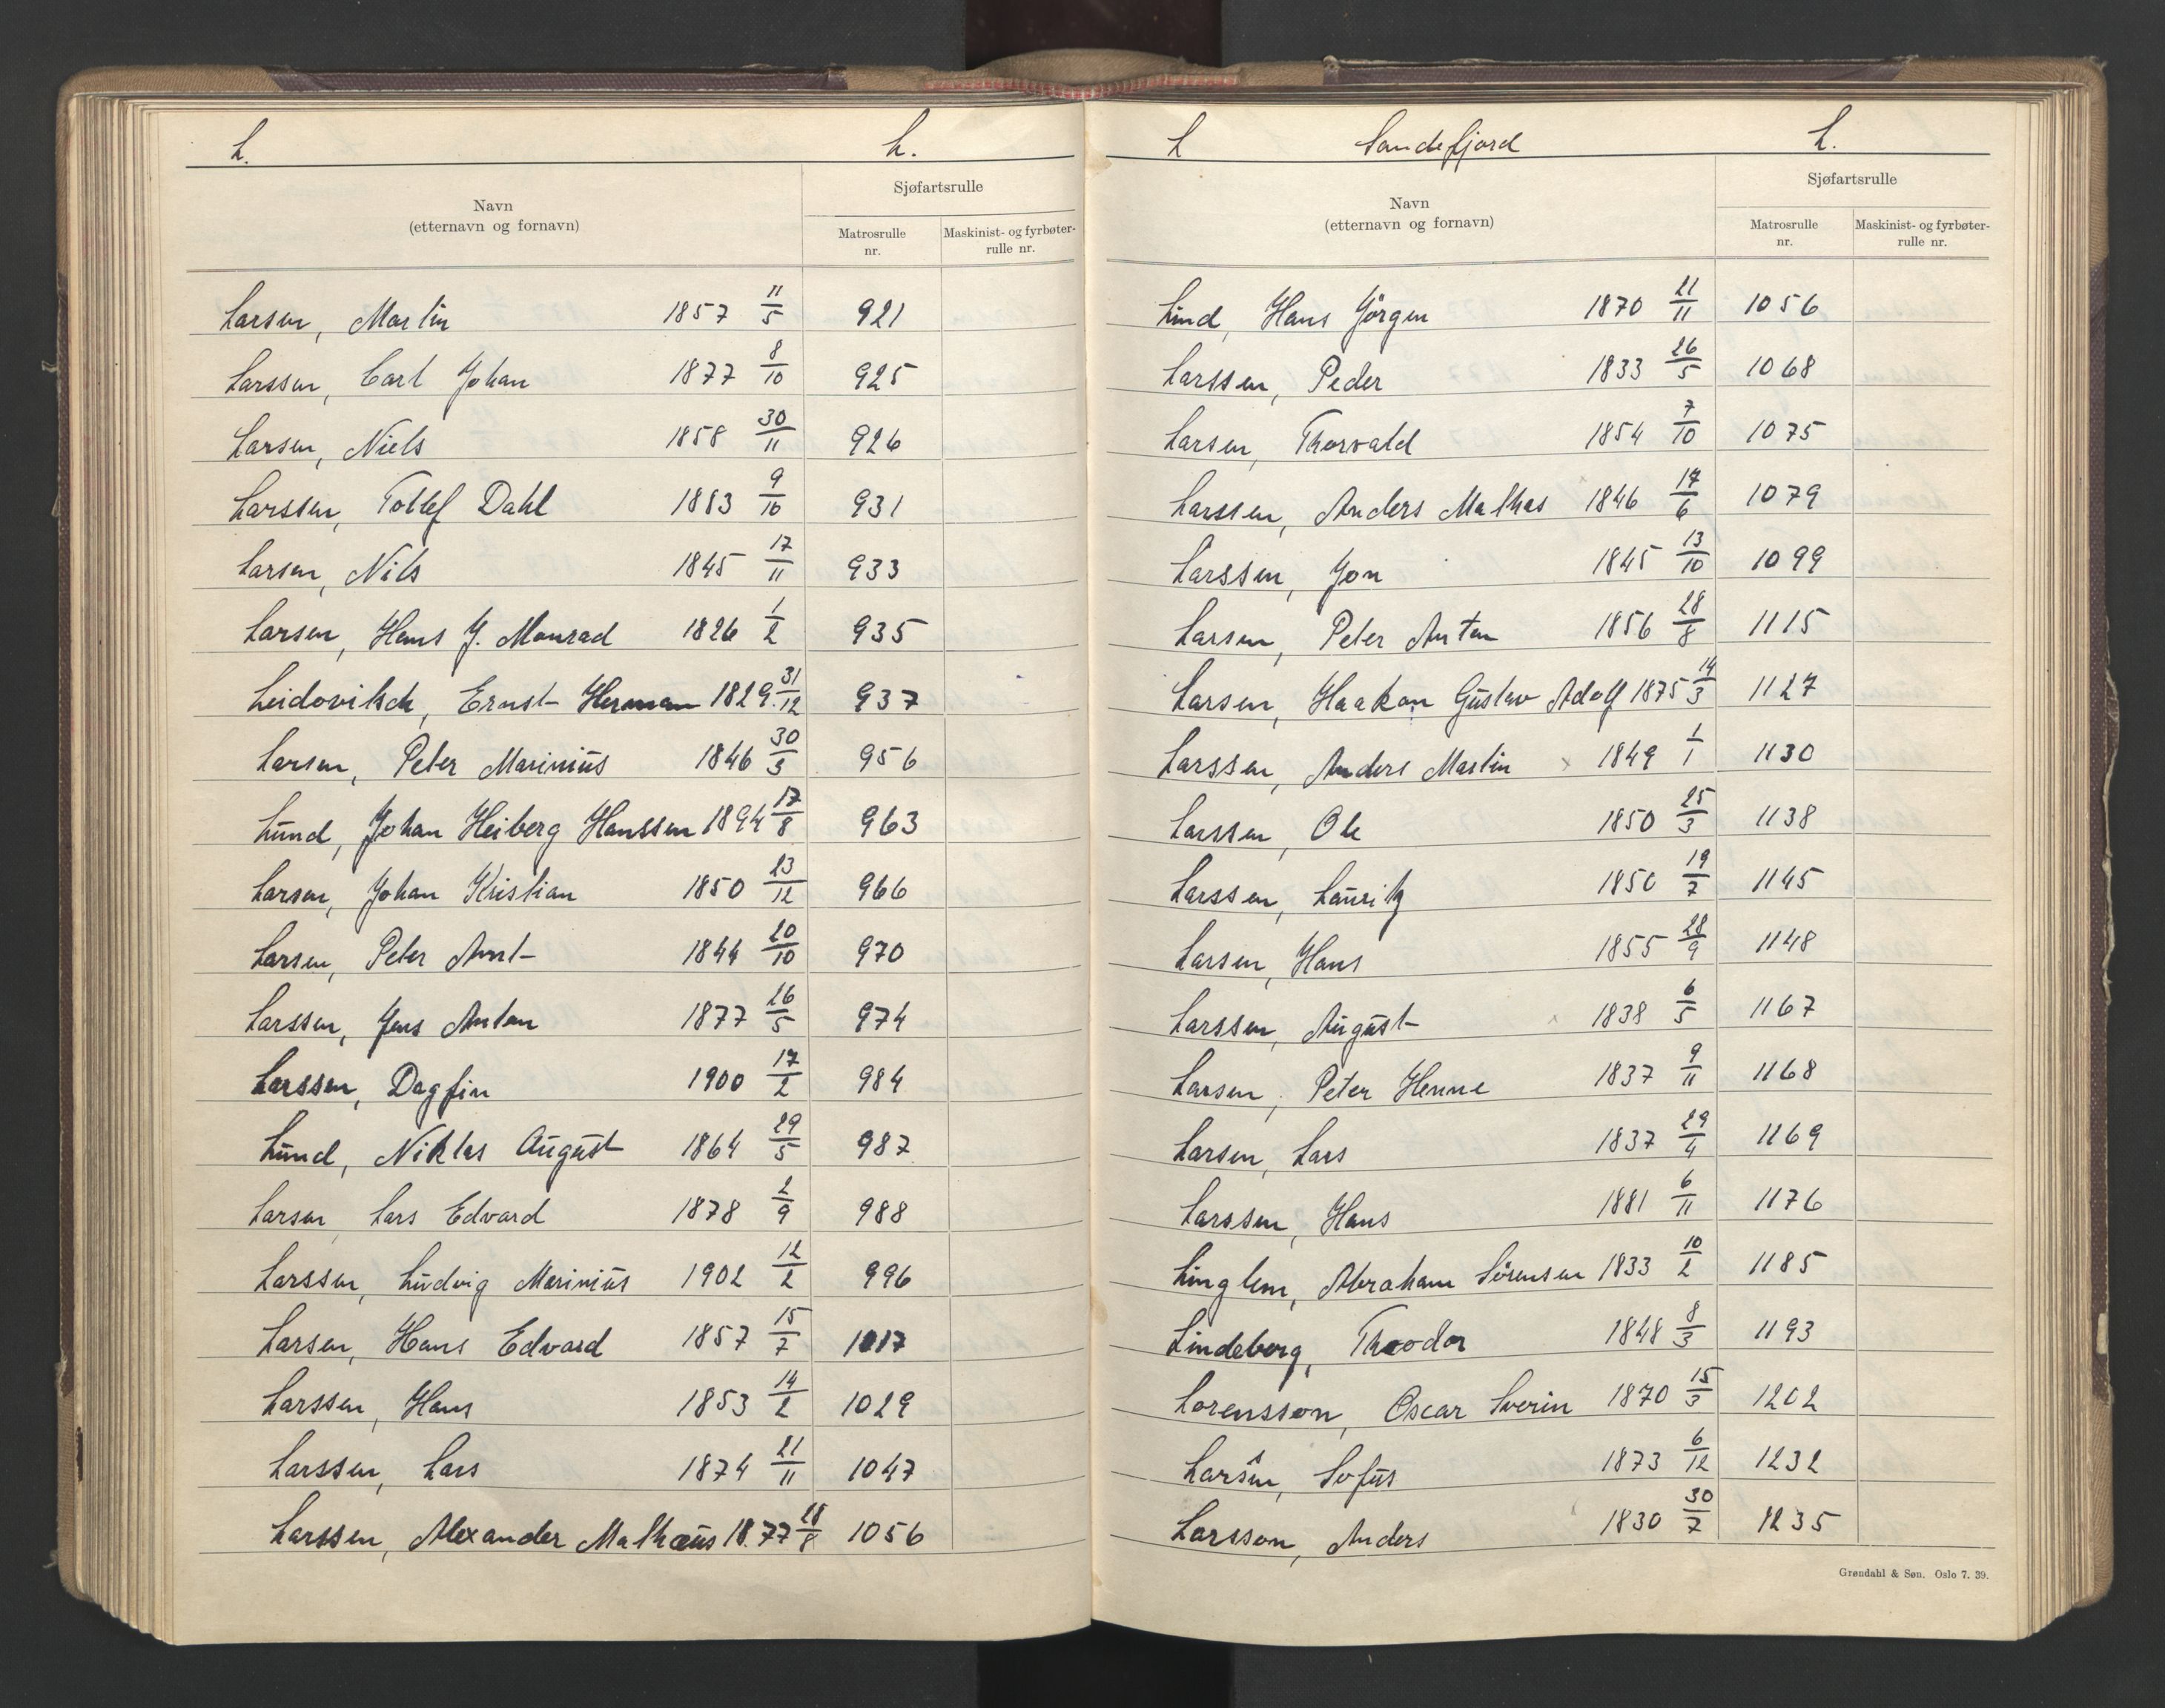 L. L.
Navn
(etternavn og fornavn)
Sjøfartsrulle
Matrosrulle
nr.
Maskinist- og fyrbøter-
rulle nr.
Larsen, Martin 1857 11/5 921
Larssen, Carl Johan 1877 8/10 925
Larsen, Niels 1858 30/11 926
Larssen, Tollef Dahl 1883 9/10 931
Larsen, Nils 1845 17/11 933
Larsen, Hans J. Monrad 1826 1/2 935
Leidoviksch, Ernst Herman 1829. 31/12 937
Larsen, Peter Marinius 1846 30/3 956
Lund, Johan Heiberg Hanssen 1894 17/8 963
Larsen, Johan Kristian 1850 23/12 966
Larsen, Peter Arnt 1844 20/10 970
Larssen, Jens Anton 1877 26/5 974
Larssen, Dagfin 1900 17/2 984
Lund, Niklas August 1864 29/5 987
Larsen, Lars Edvard 1878 2/9 988
Larssen, Ludvig Marinius 1902 12/2 996
Larsen, Hans Edvard 1857 15/7 1017
Larssen, Hans 1853 14/2 1029
Larssen, Lars 1874 21/11 1047
Larssen, Alexander Mathæus 18.77 28/8 1056
L Sandefjord L.
Navn
(etternavn og fornavn)
Sjøfartsrulle
Matrosrulle
nr.
Maskinist- og fyrbøter-
rulle nr.
Lind, Hans Jörgen 1870 21/11 1056
Larssen, Peder 1833 26/5 1068
Larsen, Thorvald 1854 7/10 1075
Larssen, Anders Mathas 1846 17/6 1079
Larssen, Jon 1845 13/10 1099
Larsen, Peter Anton 1856 28/8 1115
Larsen, Haakon Gustav Adolf 1875 14/3 1127
Larssen, Anders Martin x 1849 1/1 1130
Larssen, Ole 1850 25/3 1138
Larssen, Lauritz 1850 19/7 1145
Larsen, Hans 1855 28/9 1148
Larssen, August 1838 6/5 1167
Larsen, Peter Henne 1837 9/11 1168
Larsen, Lars 1837 29/4 1169
Larssen, Hans 1881 6/11 1176
Linglem, Abraham Sörensen 1833 10/2 1185
Lindeberg, Theodor 1848 8/3 1193
Lorensson, Oscar Sverin 1870 15/3 1202
Larsen, Sofus 1873 6/12 1232
Larsson, Anders 1830 30/7 1235
Grøndahl & Søn. Oslo 7. 39.